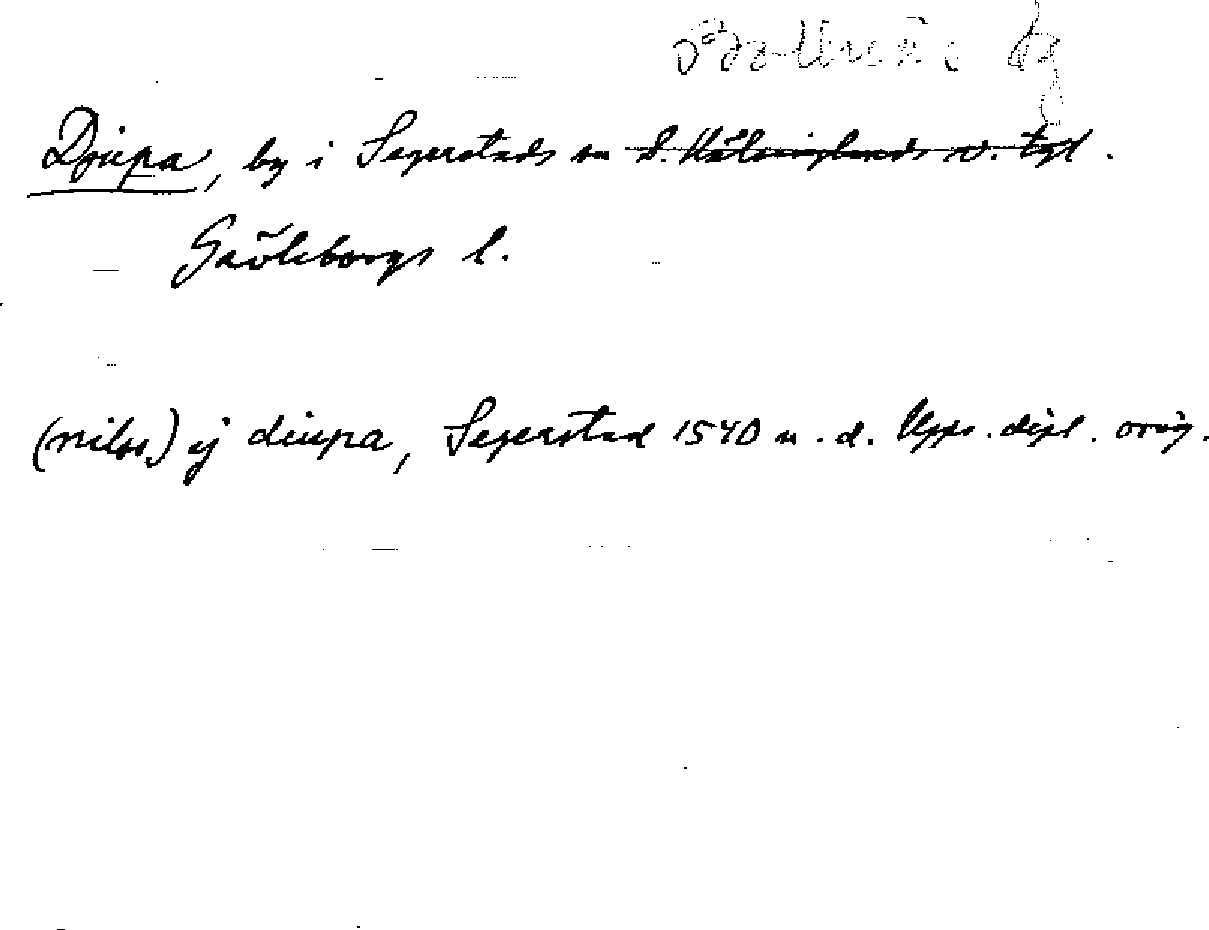 Djupa, by i Segerstads sn S. Hälsinglands v. tgl.
Gävleborgs l.
(nilss) ij diupa, Segerstad 1540 u. d. Upps. dipl. orig.